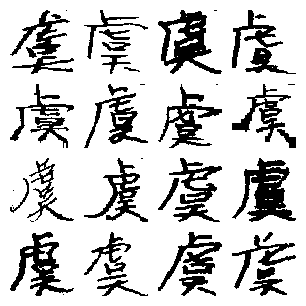 虞虞虞虞
虞虞虞虞
虞虞虞虞
虞虞虞虞